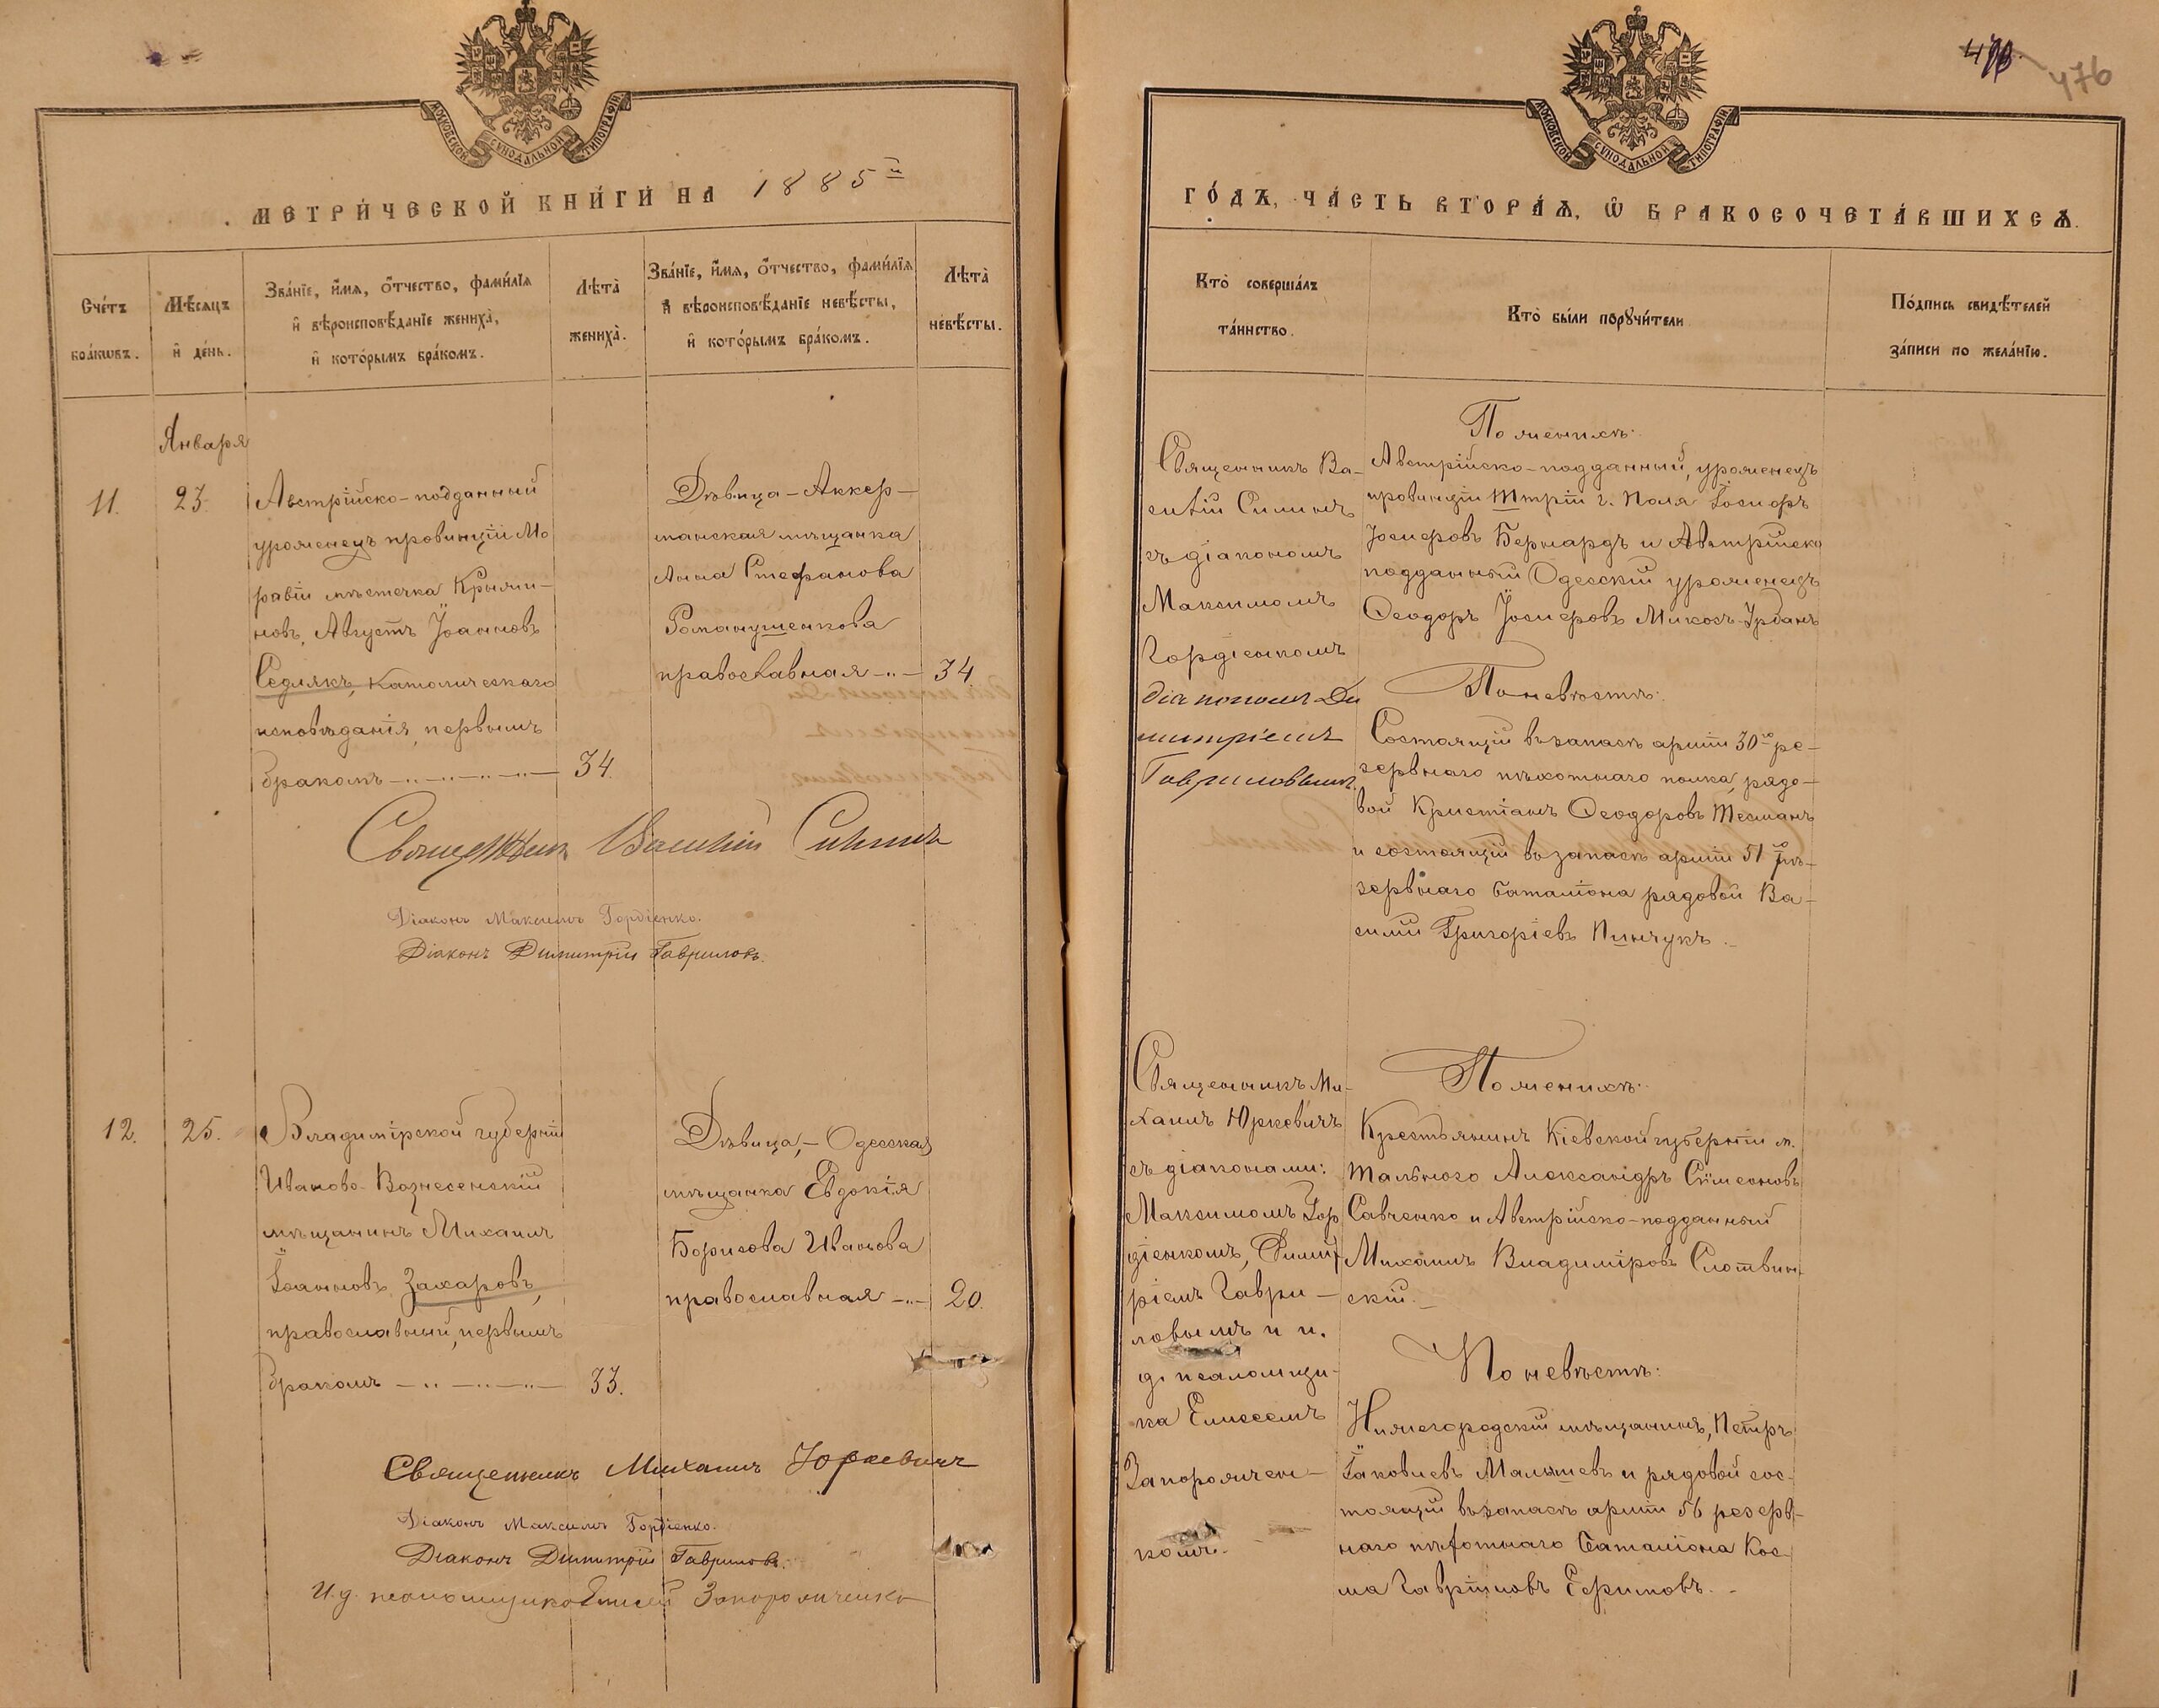 МОСКОВСКОЙ СУНОДАЛЬНОЙ ТИПОГРАФІИ
МЕТРИ́ЧЕСКОЙ КНИ́ГИ НА 1885й
Сче́тъ бра́кѡвъ.
Мѣ́сяцъ и҆ де́нь.
Зва́нїе, и҆́мѧ, ѻ҆́тчество, фами́лїѧ
и҆ вѣроисповѣ́данїе жениха̀,
и҆ кото́рымъ бра́комъ.
Лѣ́та̀
жениха̀.
Зва́нїе, и҆́мѧ, ѻ҆́тчество, фами́лїѧ
и҆ вѣроисповѣ́данїе невѣ́сты,
и҆ кото́рымъ бра́комъ.
Лѣ́та̀
невѣ́сты.
Января
11.
23.
Австрійско-подданный
уроженецъ провинціи Мо
равіи мѣстечка Крыжи-
новъ, Августъ Іоанновъ
Седлякъ, католическаго
исповѣданія, первымъ
бракомъ
34.
Дѣвица - Аккер-
манская мѣщанка
Анна Стефанова
Романушенкова
православная
34
Священникъ Василій Силинъ
Діаконъ Максимъ Гордіенко.
Діаконъ Димитрій Гавриловъ.
12.
25.
Владимірской губерніи
Иваново-Вознесенскій
мѣщанинъ Михаилъ
Іоанновъ Захаровъ,
православный, первымъ
бракомъ
33.
Дѣвица, - Одесская
мѣщанка Евдокія
Борисова Иванова
православная
20.
Священникъ Михаилъ Юркевичъ
Діаконъ Максимъ Гордіенко.
Діаконъ Димитрій Гавриловъ.
И. д. псаломщика Елисей Запорожченко
476
МОСКОВСКОЙ СУНОДАЛЬНОЙ ТИПОГРАФІИ
ГО́ДЪ, ЧА́СТЬ ВТОРА́Ѧ, Ѽ БРАКОСОЧЕТА́ВШИХСѦ.
Кто̀ соверша́лъ
та́инство.
Кто̀ бы́ли порꙋчи́тели
По́дпись свидѣ́телей
за́писи по жела́нїю.
Священникъ Ва-
силій Силинъ
съ діакономъ
Максимомъ
Гордіенкомъ
діакономъ Ди
митріемъ
Гавриловымъ.
По женихѣ:
Австрійско-подданный, уроженецъ
провинціи Штріи г. Поля Іосифъ
Іосифовъ Бернардъ и Австрійско
подданный Одесскій уроженецъ
Ѳеодоръ Іосифовъ Микосъ-Урбанъ
По невѣстѣ:
Состоящій въ запасѣ арміи 30го ре-
зервнаго пѣхотнаго полка, рядо-
вой Христіанъ Ѳеодоровъ Тесманъ
и состоящій въ запасѣ арміи 51го рѣ-
зервнаго баталіона рядовой Ва-
силій Григоріевъ Пинчукъ.
Священникъ Ми-
хаилъ Юркевичъ
съ діаконами:
Максимомъ Гор
діенкомъ, Димит
ріемъ Гаври-
ловымъ и и.
д. псаломщи-
ка Елисеемъ
Запорожчен-
комъ.
По женихѣ:
Крестьянинъ Кіевской губерніи м.
Тальнаго Александръ Сѵмеоновъ
Савченко и Австрійско-подданный
Михаилъ Владиміровъ Слотвин-
скій.
По невѣстѣ:
Нижегородскій мѣщанинъ, Петръ
Іаковлевъ Малышевъ и рядовой сос-
тоящій въ запасѣ арміи 56 резерв-
наго пѣхотнаго баталіона Кос-
ма Гавріиловъ Ефимовъ.